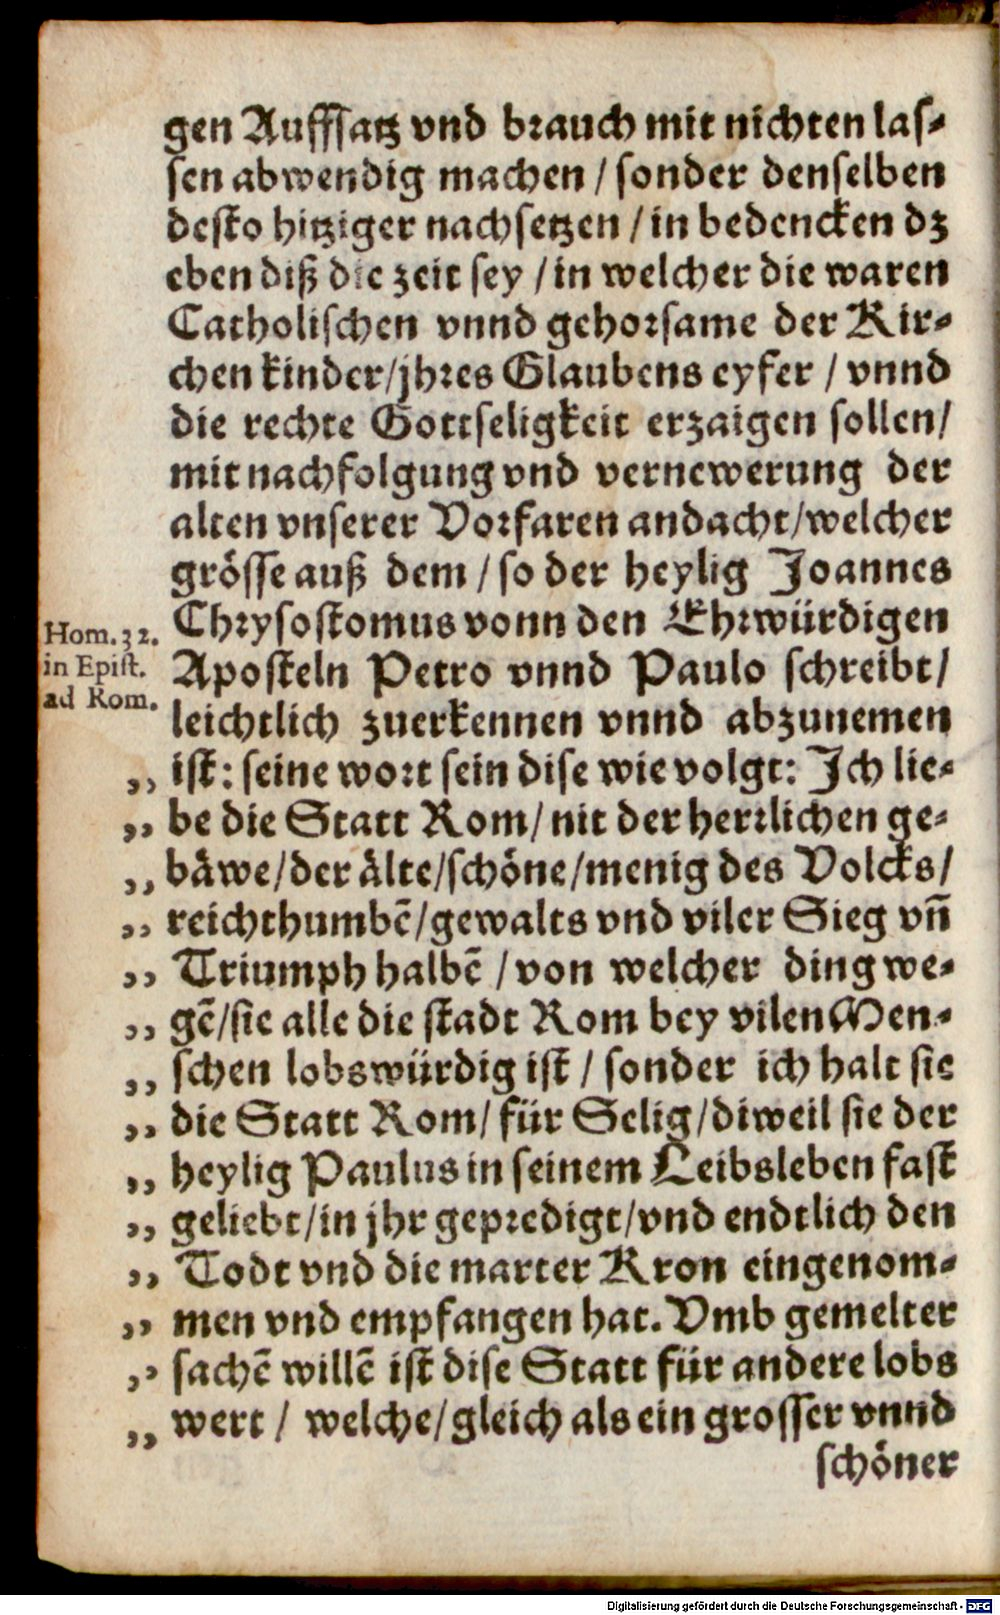 gen Auffsatz vnd brauch mit nichten las-
sen abwendig machen / sonder denselben
desto hitziger nachsetzen / in bedencken dz
eben diß die zeit sey / in welcher die waren
Catholischen vnnd gehorsame der Kir-
chen kinder/jhres Glaubens eyfer / vnnd
die rechte Gottseligkeit erzaigen sollen/
mit nachfolgung vnd vernewerung der
alten vnserer Vorfaren andacht/welcher
grösse auß dem / so der heylig Joannes
Chrysostomus vonn den Ehrwürdigen
Hom. 32.
in Epist.
ad Rom.
Aposteln Petro vnnd Paulo schreibt/
leichtlich zuerkennen vnnd abzunemen
„ ist: seine wort sein dise wie volgt: Ich lie-
„ be die Statt Rom/ nit der herrlichen ge-
„ bäwe/der älte/schöne/menig des Volcks/
„ reichthumbē/gewalts vnd viler Sieg vñ
„ Triumph halbē / von welcher ding we-
„ gē/sie alle die stadt Rom bey vilen Men-
„ schen lobswürdig ist / sonder ich halt sie
„ die Statt Rom/ für Selig/diweil sie der
„ heylig Paulus in seinem Leibsleben fast
„ geliebt/in jhr gepredigt/vnd endtlich den
„ Todt vnd die marter Kron eingenom-
„ men vnd empfangen hat. Vmb gemelter
„ sachē willē ist dise Statt für andere lobs
„ wert / welche/gleich als ein grosser vnnd
schöner
Digitalisierung gefördert durch die Deutsche Forschungsgemeinschaft - DFG